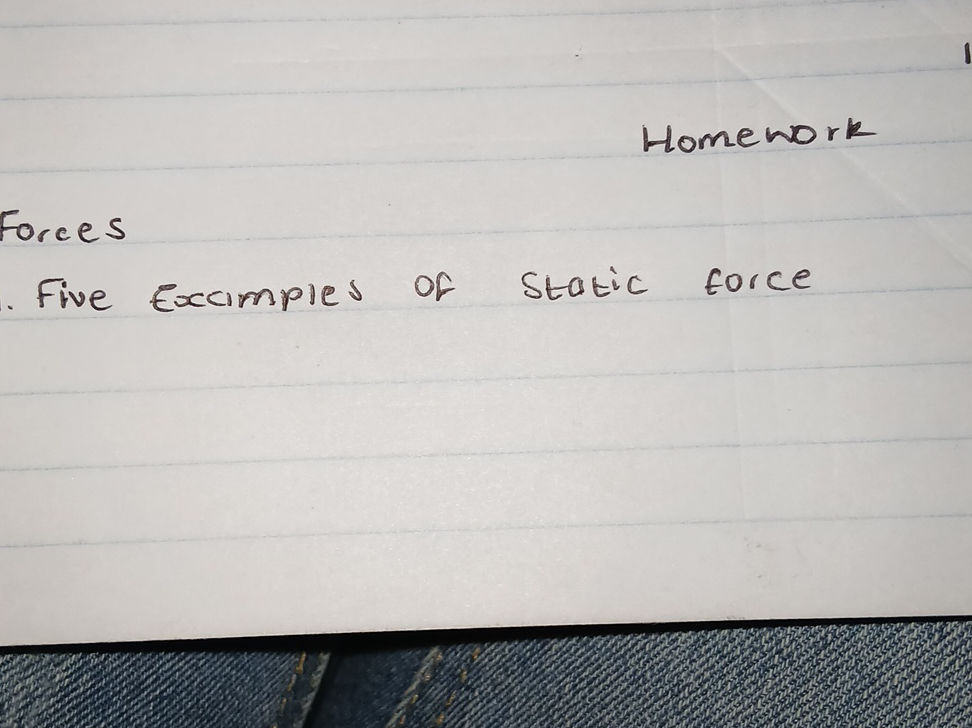 Homework
Forces
. Five Examples of Static force